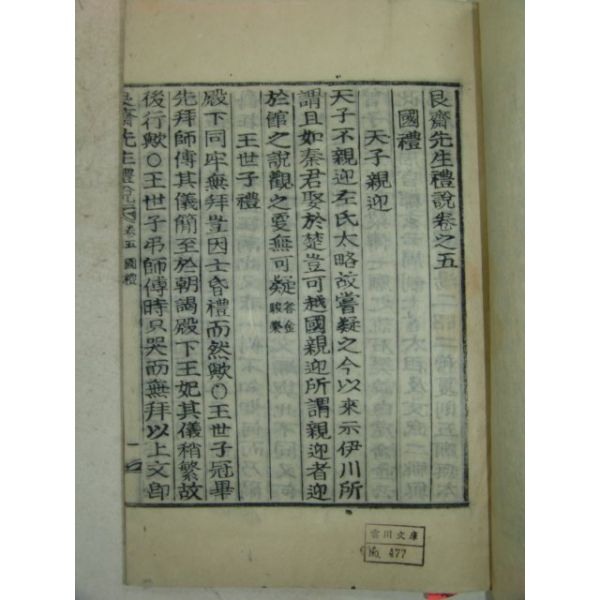 艮齋先生禮說卷之五
國禮
天子親迎
天子不親迎左氏太略故嘗疑之今以來示伊川所
謂且如秦君娶於楚豈可越國親迎所謂親迎者迎
於館之說觀之憂無可疑答金駿榮
王世子禮
殿下同牢無拜豈因士昏禮而然歟○王世子冠畢
先拜師傅其儀簡至於朝謁殿下王妃其儀稍繁故
後行歟○王世子弔師傅時只哭而無拜以上文卽
艮齋先生禮說 卷五 國禮 一
雲川文庫
№ 477